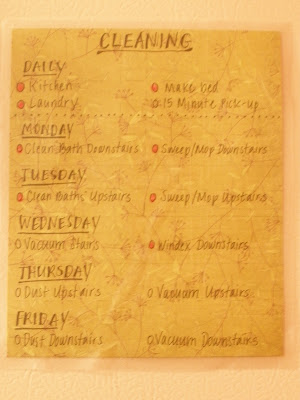 CLEANING
DAILY
Kitchen Make bed
Laundry 15 Minute Pick-up
MONDAY
Clean Bath Downstairs Sweep/Mop Downstairs
TUESDAY
Clean Baths Upstairs Sweep/Mop Upstairs
WEDNESDAY
Vacuum Stairs Windex Downstairs
THURSDAY
Dust Upstairs Vacuum Upstairs
FRIDAY
Dust Downstairs Vacuum Downstairs